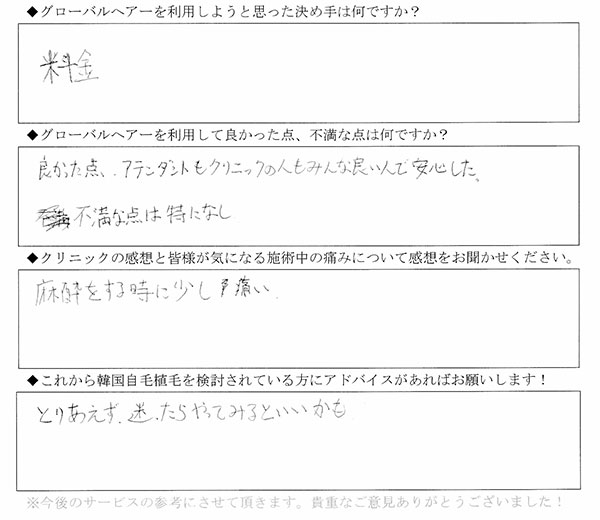 ◆グローバルヘアーを利用しようと思った決め手は何ですか？
料金
◆グローバルヘアーを利用して良かった点、不満な点は何ですか？
良かった点、アテンダントもクリニックの人もみんな良い人で安心した、
不満な点は特になし
◆クリニックの感想と皆様が気になる施術中の痛みについて感想をお聞かせください。
麻酔をする時に少し痛い
◆これから韓国自毛植毛を検討されている方にアドバイスがあればお願いします！
とりあえず、迷ったらやってみるといいかも
※今後のサービスの参考にさせて頂きます。貴重なご意見ありがとうございました！